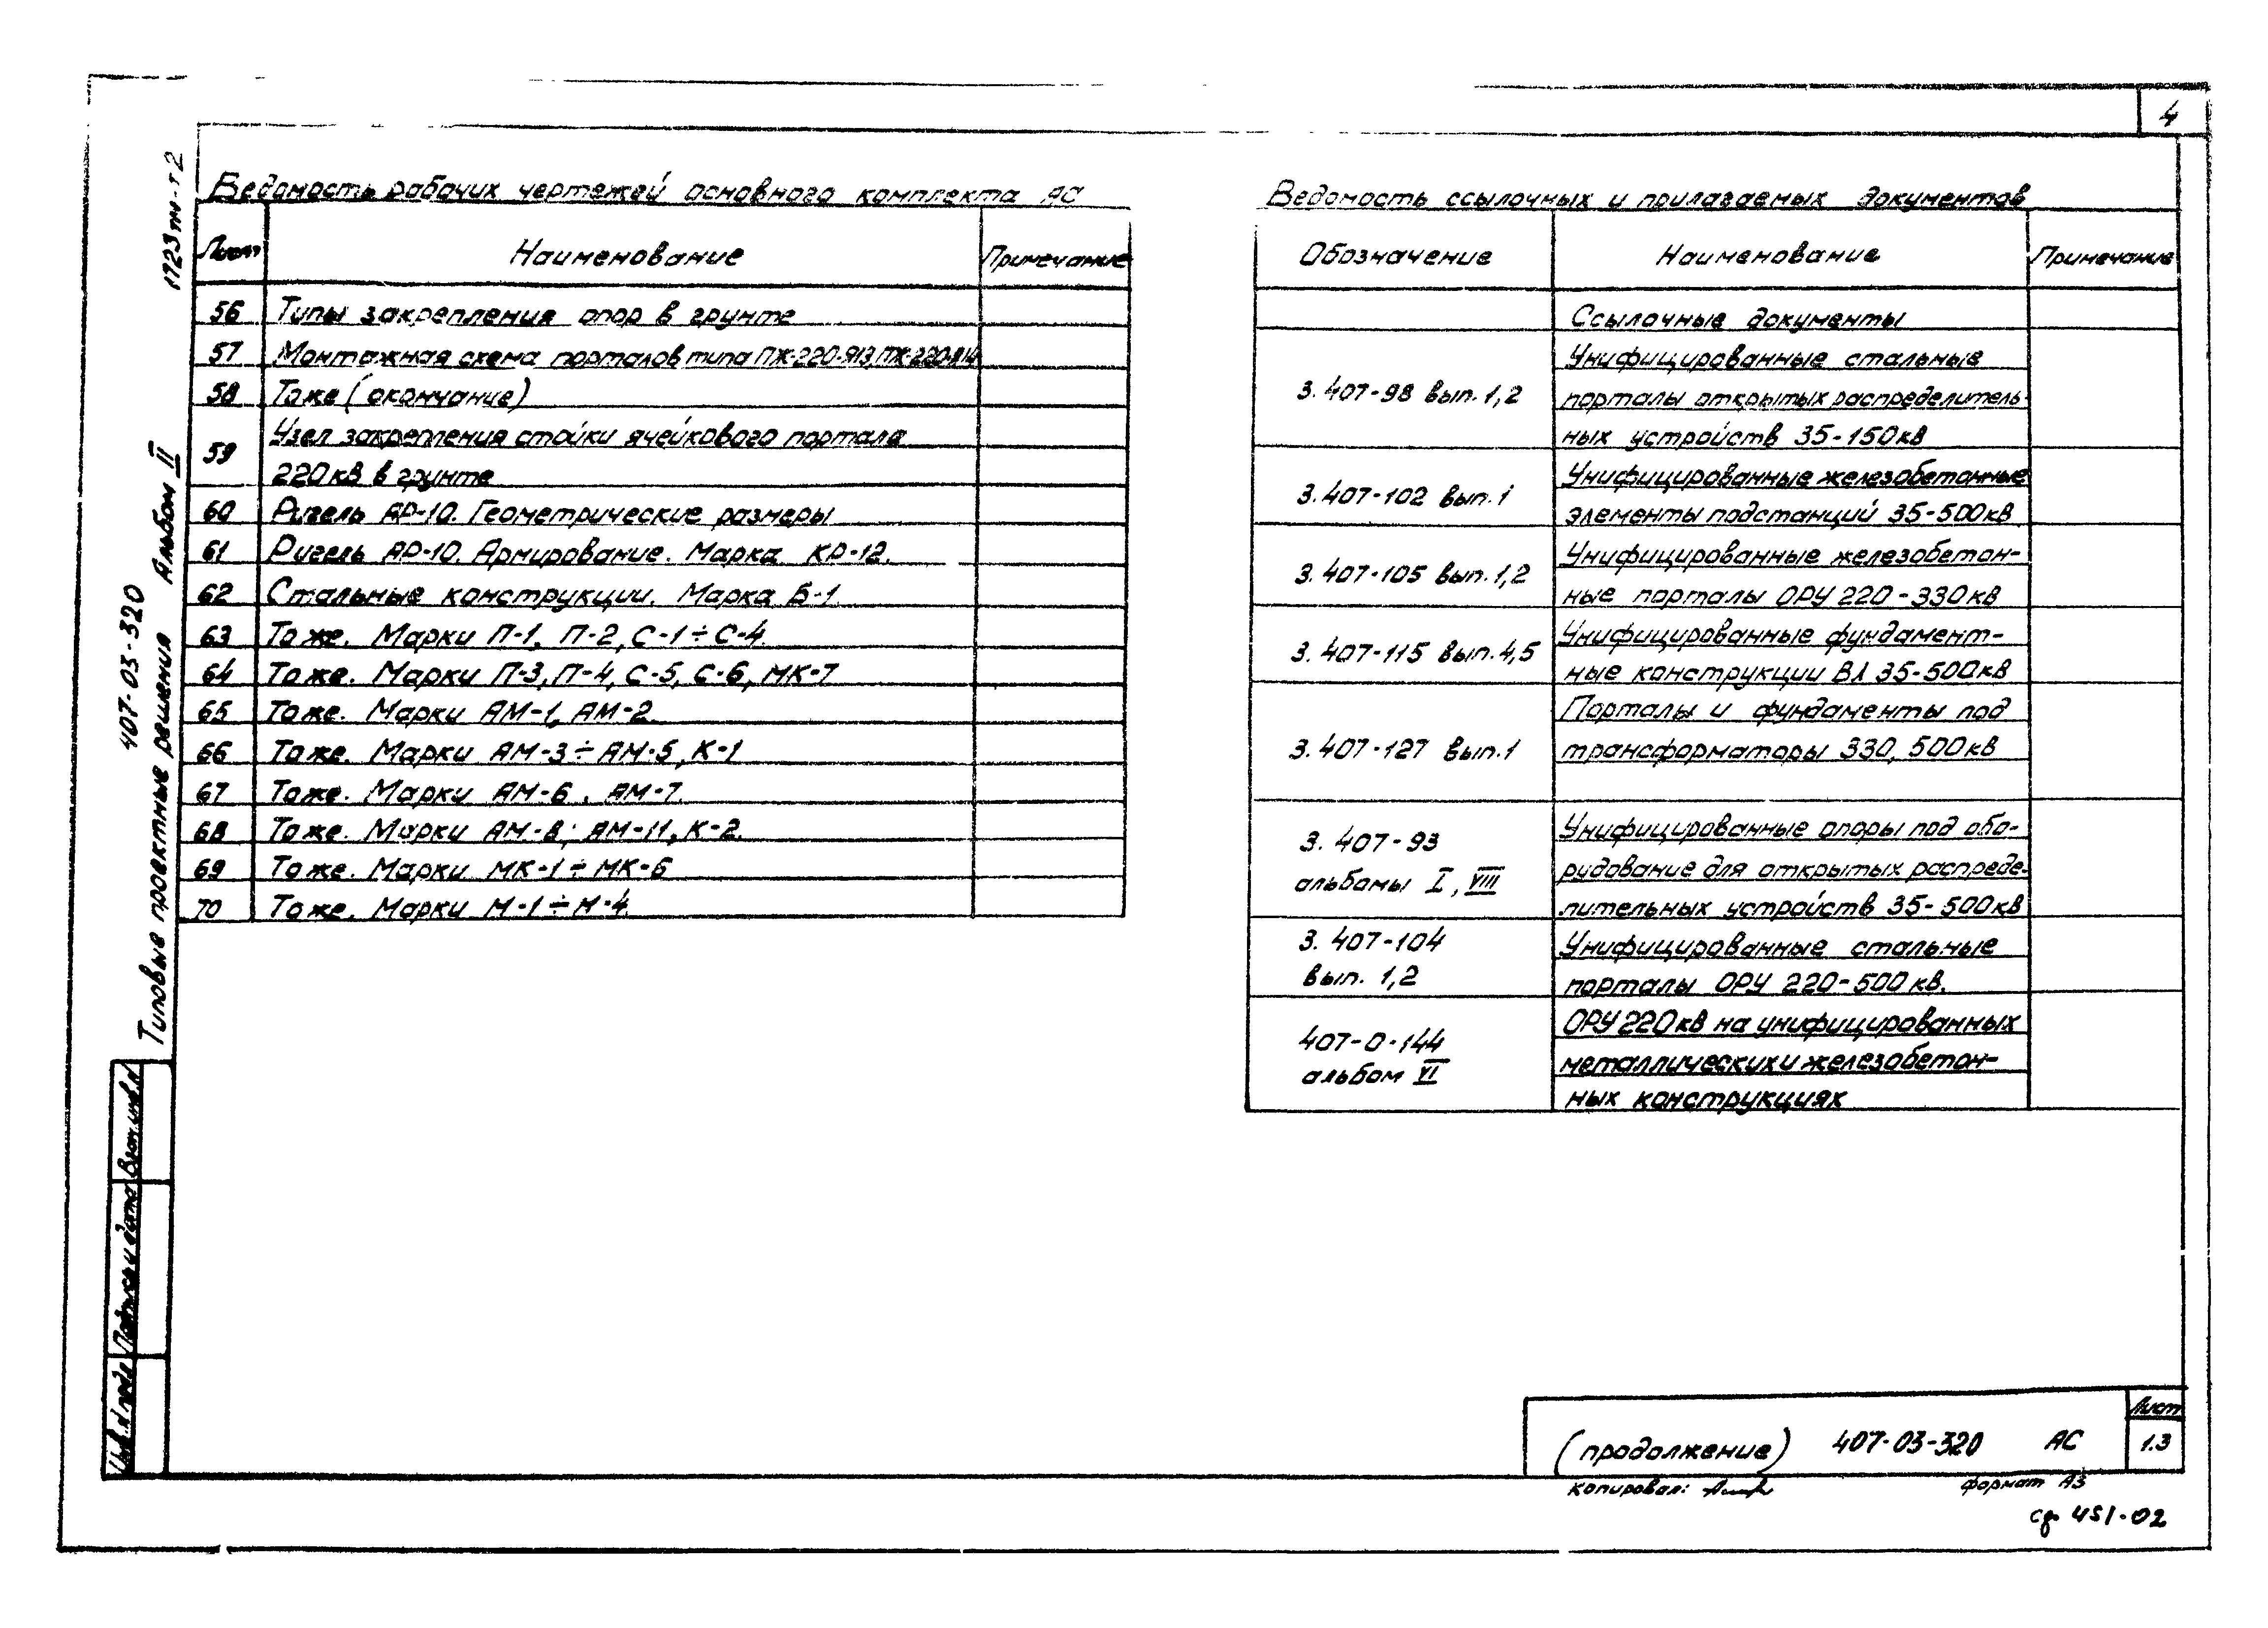 4
1723тм-т2
407-03-320
Типовые проектные решения Альбом II
Ведомость рабочих чертежей основного комплекта АС
Лист Наименование Примечание
56 Типы закрепления опор в грунте
57 Монтажная схема порталов типа ПЖ-220-Я13, ПЖ-220-Я14
58 Тоже (окончание)
59 Узел закрепления стойки ячейкового портала
220 кв в грунте
60 Ригель АР-10. Геометрические размеры
61 Ригель АР-10. Армирование. Марка КР-12.
62 Стальные конструкции. Марка Б-1.
63 Тоже. Марки П-1, П-2, С-1÷С-4.
64 Тоже. Марки П-3, П-4, С-5, С-6, МК-7
65 Тоже. Марки АМ-1, АМ-2.
66 Тоже. Марки АМ-3÷АМ-5, К-1
67 Тоже. Марки АМ-6, АМ-7.
68 Тоже. Марки АМ-8; АМ-11, К-2.
69 Тоже. Марки МК-1÷МК-6
70 Тоже. Марки М-1÷М-4.
Ведомость ссылочных и прилагаемых документов
Обозначение Наименование Примечание
Ссылочные документы
3.407-98 вып. 1,2 Унифицированные стальные
порталы открытых распределитель-
ных устройств 35-150кв
3.407-102 вып. 1 Унифицированные железобетонные
элементы подстанций 35-500кв
3.407-105 вып. 1,2 Унифицированные железобетон-
ные порталы ОРУ 220-330кв
3.407-115 вып. 4,5 Унифицированные фундамент-
ные конструкции ВЛ 35-500кв
3.407-127 вып. 1 Порталы и фундаменты под
трансформаторы 330, 500кв
3.407-93
альбомы I, VIII
Унифицированные опоры под обо-
рудование для открытых распреде-
лительных устройств 35-500кв
3.407-104
вып. 1,2
Унифицированные стальные
порталы ОРУ 220-500кв.
407-0-144
альбом VI
ОРУ 220кв на унифицированных
металлических и железобетон-
ных конструкциях
Инв.№ подл. Подпись и дата Взам. инв.№
(продолжение) 407-03-320 АС
Лист
1.3
Копировал: формат А3
сф 451-02